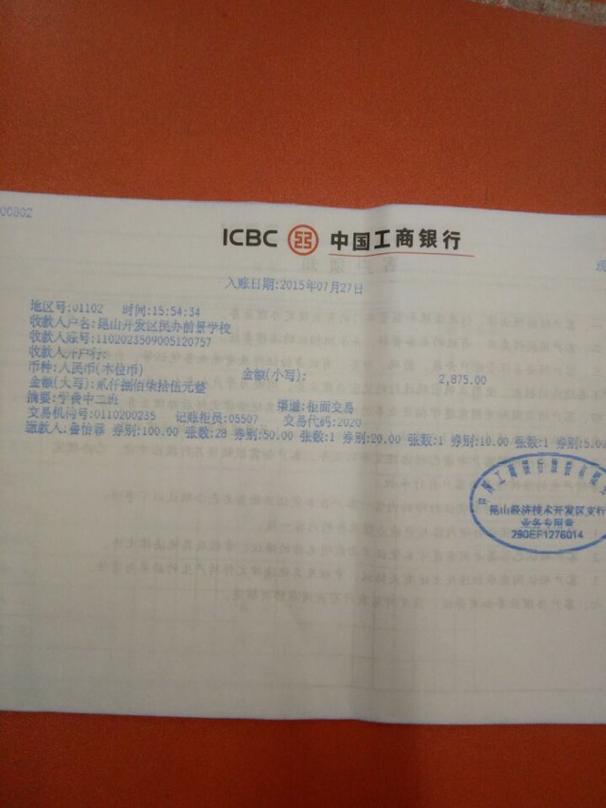 00802
ICBC 中国工商银行
入账日期:2015年07月27日
地区号:01102 时间:15:54:34
收款人户名:昆山开发区民办前景学校
收款人账号:1102023509005120757
收款人开户行:
币种:人民币(本位币) 金额(小写): 2,875.00
金额(大写):贰仟捌佰柒拾伍元整 渠道:柜面交易
摘要:学费中二班 交易代码:2020
交易机构号:0110200235 记账柜员:05507
缴款人:鲁怡蓉 券别:100.00 张数:28 券别:50.00 张数:1 券别:20.00 张数:1 券别:10.00 张数:1 券别:5.0
中国工商银行股份有限
昆山经济技术开发区支行
业务专用章
290EF1276014